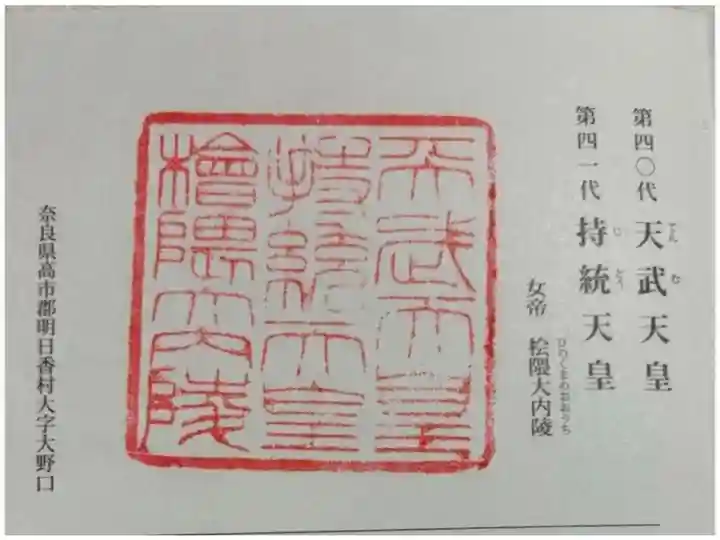 第四〇代 天武天皇
てんむ
第四一代 持統天皇
じとう
女帝 桧隈大内陵
ひのくまのおおうち
天武天皇
持統天皇
檜隈大内陵
奈良県高市郡明日香村大字大野口